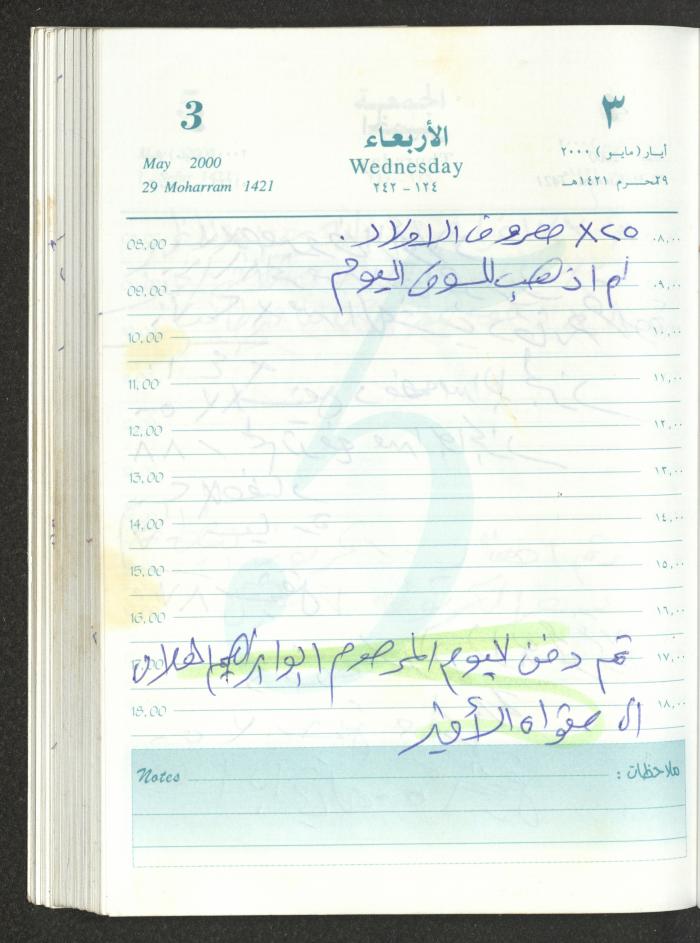 3
٣
May 2000
29 Moharram 1421
الأربعاء
Wednesday
٢٤٢ - ١٢٤
أيار (مايو) ٢٠٠٠
٢٩ محرم ١٤٢١هـ
08,00 ٨,٠٠ مصروف الاولاد .
لم اذهب للسوق اليوم
09,00 ٩,٠٠
10,00 ١٠,٠٠
11,00 ١١,٠٠
12,00 ١٢,٠٠
13,00 ١٣,٠٠
14,00 ١٤,٠٠
15,00 ١٥,٠٠
16,00 ١٦,٠٠
تم دفن ليوم المرحوم ابوابراهيم
17,00 ١٧,٠٠
ال مثواه الأخير
18,00 ١٨,٠٠
Notes ملاحظات :